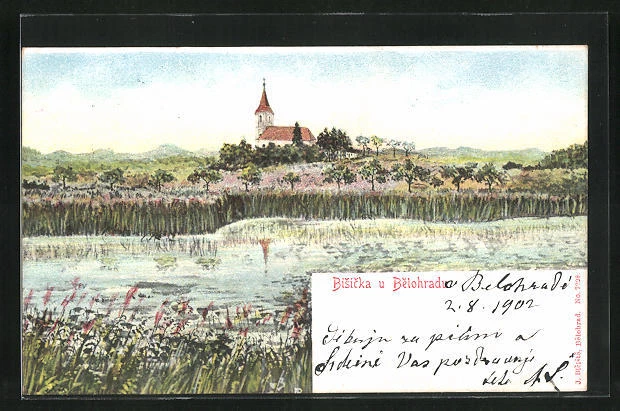 Bišička u Bělohradu
v Belohradě
2.8.1902
Děkuji za psaní a
Srdečně Vas pozdravuje
J. Bělohrad. No.